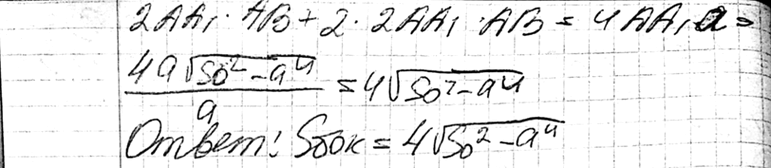 2AA₁·AB+2·2AA₁·AB=4AA₁a=
4a√(S₀²-a⁴)/a=4√(S₀²-a⁴)
Ответ: Sбок=4√(S₀²-a⁴)